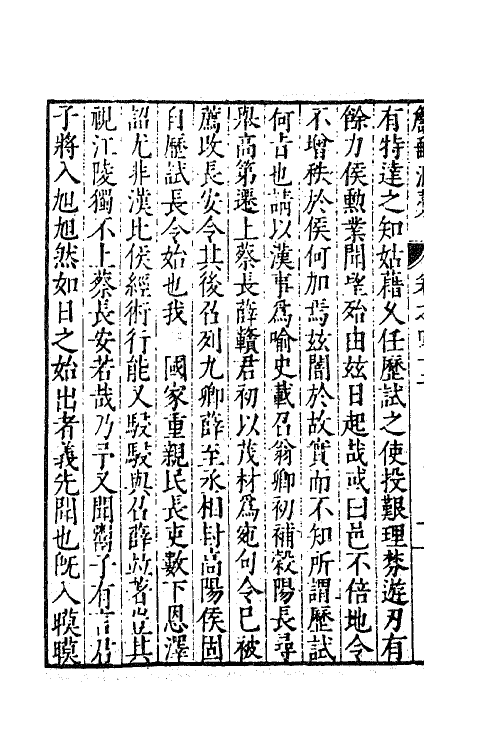 有特達之知姑藉久任歷試之使投艱理棼遊刃有
餘力侯勲業聞望殆由玆日起哉或曰邑不倍地令
不增秩於侯何加焉玆闇於故實而不知所謂歷試
何古也請以漢事爲喻史載召翁卿初補榖陽長尋
舉高第遷上蔡長薛贛君初以茂材爲宛句令巳被
薦改長安令其後召列九卿薛至丞相封高陽侯固
自歷試長令始也我　國家重親民長吏數下恩澤
詔尤非漢比侯經術行能又駸駸與召薛並著豈其
視江陵獨不上蔡長安若哉乃予又聞鬻子有言君
子將入旭旭然如日之始出者義先聞也旣入暯暯